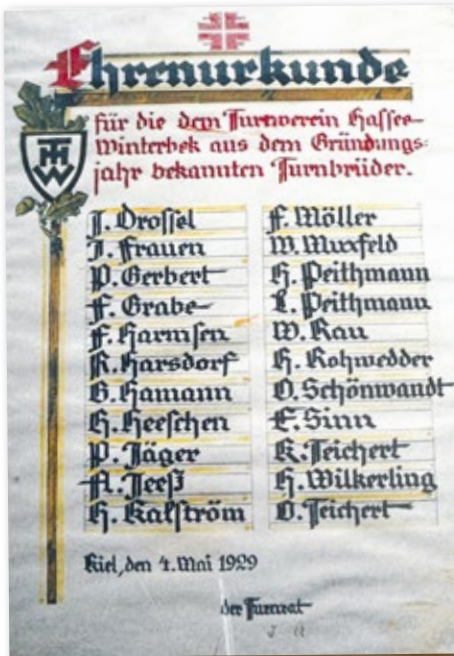 Ehrenurkunde
für die dem Turnverein Hassee-
Winterbek aus dem Gründungs-
jahr bekannten Turnbrüder.
J. Drossel
J. Frauen
P. Gerbert
F. Grabe
F. Harmsen
R. Harsdorf
B. Hamann
H. Heeschen
P. Jäger
A. Jeeß
H. Kalström
F. Möller
W. Muxfeld
H. Peithmann
L. Peithmann
W. Rau
H. Rohwedder
O. Schönwandt
E. Sinn
K. Teichert
H. Wilkerling
O. Teichert
Kiel, den 4. Mai 1929
der Turnrat